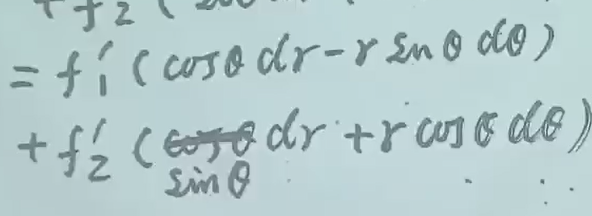 = f'₁ (cosθ dr - r sinθ dθ)
+ f'₂ (sinθ dr + r cosθ dθ)